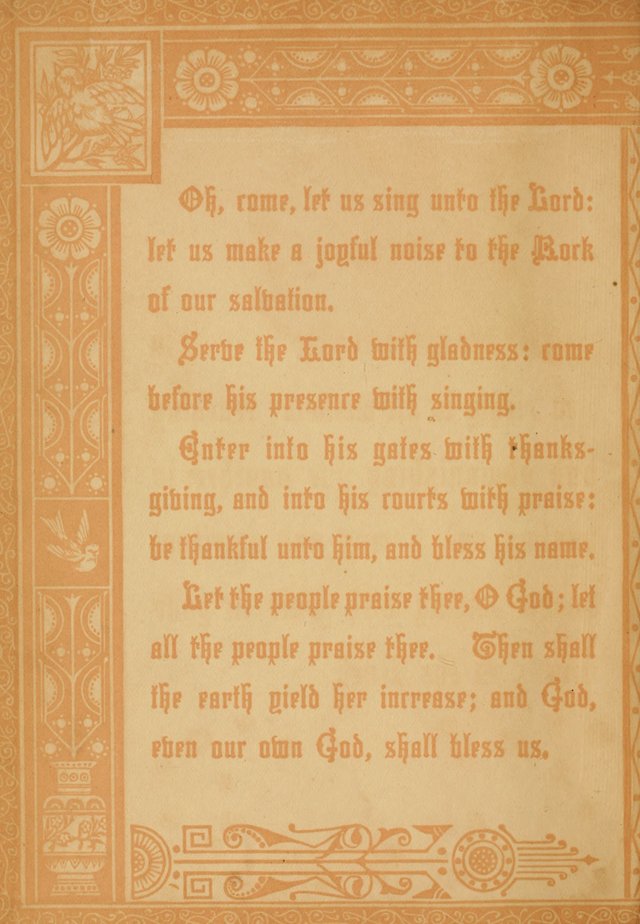 Oh, come, let us sing unto the Lord:
let us make a joyful noise to the Rock
of our salvation.
Serve the Lord with gladness: come
before his presence with singing.
Enter into his gates with thanks-
giving, and into his courts with praise:
be thankful unto him, and bless his name.
Let the people praise thee, O God; let
all the people praise thee. Then shall
the earth yield her increase; and God,
even our own God, shall bless us.